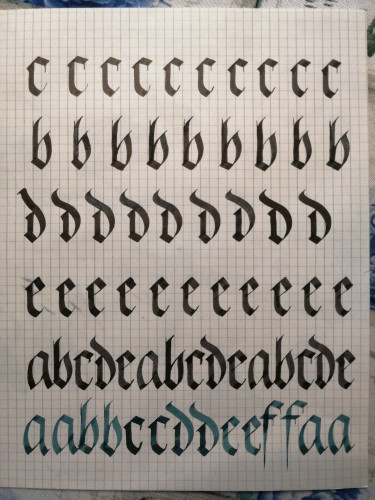 c c c c c c c c c c
b b b b b b b b b
d d d d d d d d d
e e e e e e e e e e e
abcdeabcdeabcde
aabbccddeeffaa